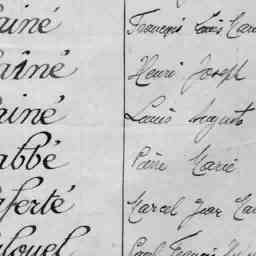 ainé François Louis
aîné Henri Joseph
ainé Louis Auguste
abbé Marie
aferté Marcel Jean
François